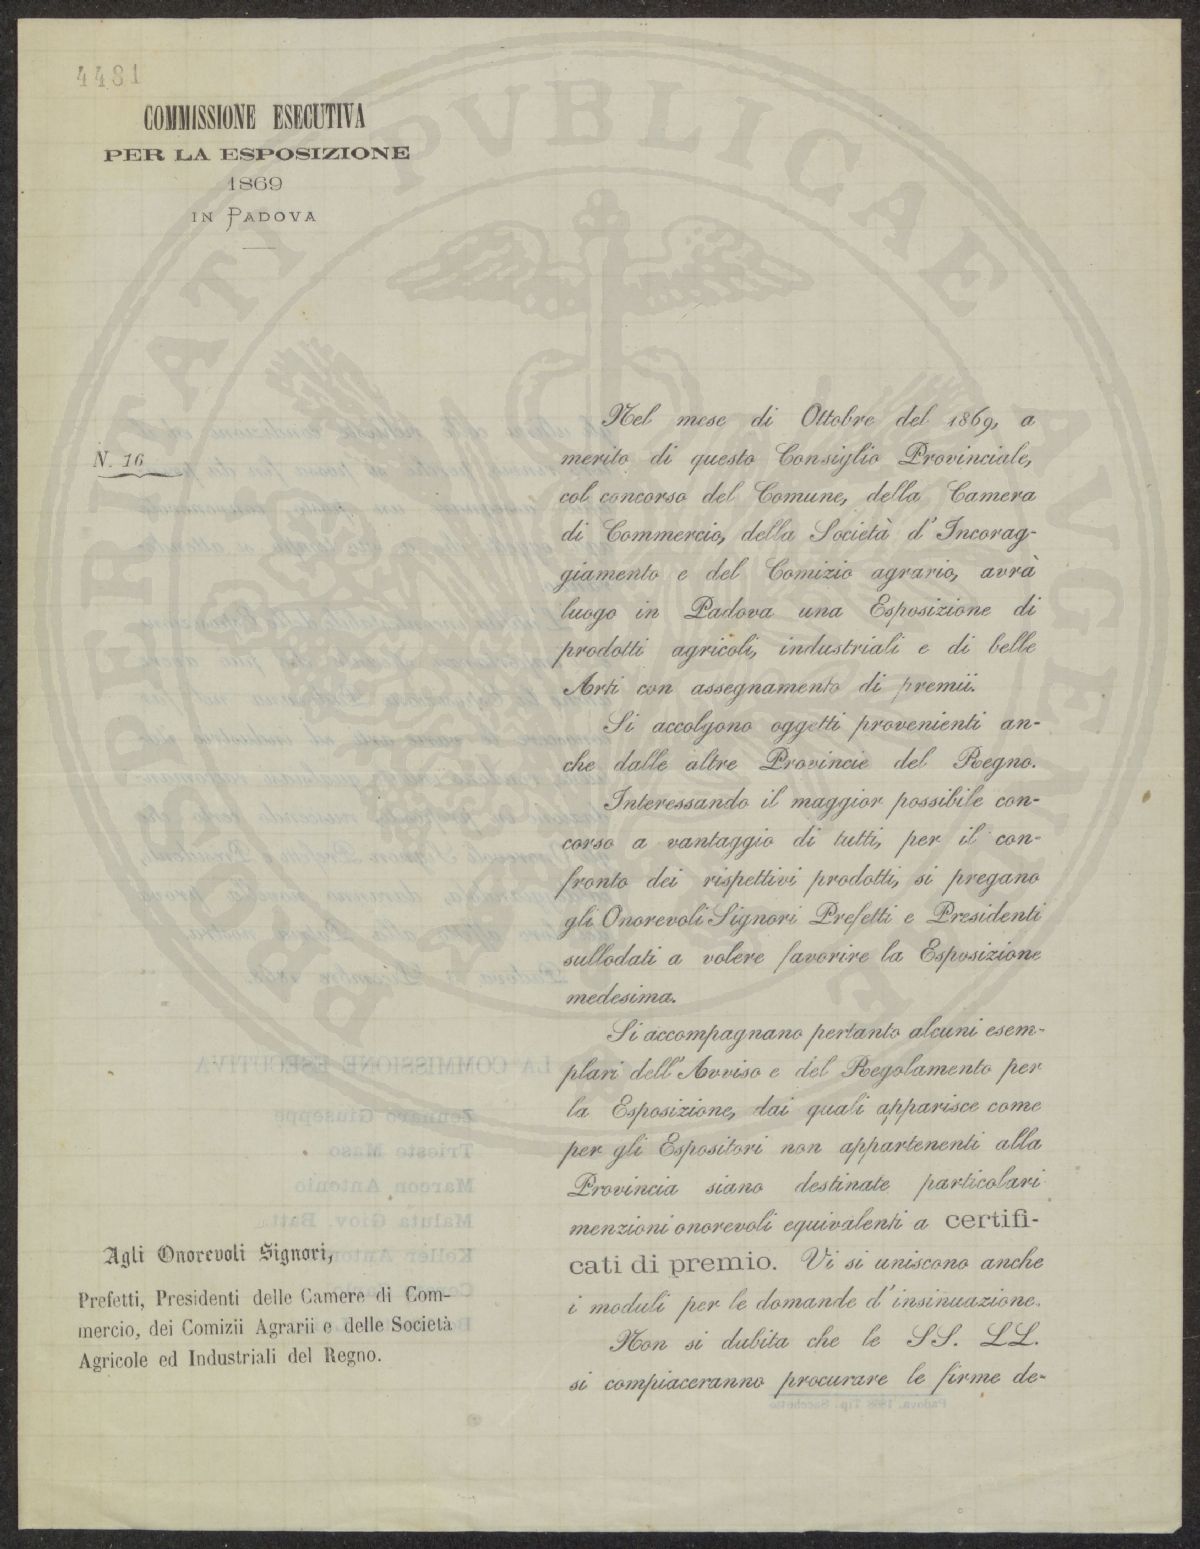 4481
COMMISSIONE ESECUTIVA
PER LA ESPOSIZIONE
1869
IN PADOVA
N. 16
Nel mese di Ottobre del 1869, a
merito di questo Consiglio Provinciale,
col concorso del Comune, della Camera
di Commercio, della Società d'Incorag-
giamento e del Comizio agrario, avrà
luogo in Padova una Esposizione di
prodotti agricoli, industriali e di belle
Arti con assegnamento di premii.
Si accolgono oggetti provenienti an-
che dalle altre Provincie del Regno.
Interessando il maggior possibile con-
corso a vantaggio di tutti, per il con-
fronto dei rispettivi prodotti, si pregano
gli Onorevoli Signori Prefetti e Presidenti
sullodati a volere favorire la Esposizione
medesima.
Si accompagnano pertanto alcuni esem-
plari dell'Avviso e del Regolamento per
la Esposizione, dai quali apparisce come
per gli Espositori non appartenenti alla
Provincia siano destinate particolari
menzioni onorevoli equivalenti a certifi-
cati di premio. Vi si uniscono anche
i moduli per le domande d'insinuazione.
Non si dubita che le SS. LL.
si compiaceranno procurare le firme de-
Agli Onorevoli Signori,
Prefetti, Presidenti delle Camere di Com-
mercio, dei Comizii Agrarii e delle Società
Agricole ed Industriali del Regno.
PROSPERITATI PVBLICAE AVGENDAE
LA COMMISSIONE ESECUTIVA
Zennaro Giuseppe
Trieste Maso
Marcon Antonio
Maluta Giov. Batt.
Keller Antonio
Padova, 1868 Tip. Sacchetto